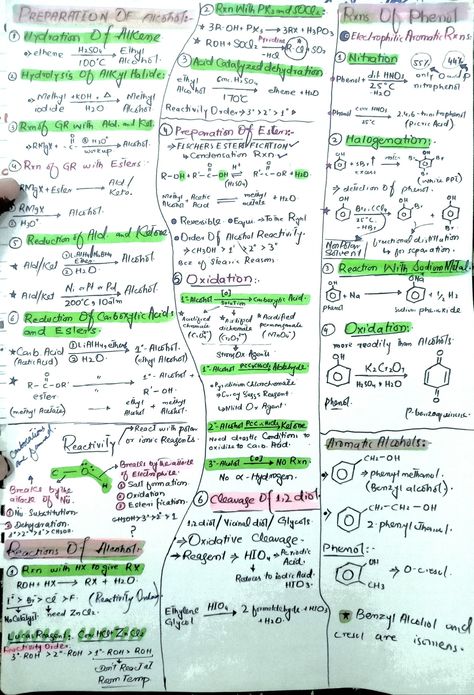 PREPARATION OF Alcohol:
① Hydration Of Alkene
→ ethene H₂SO₄ 100°C → Ethyl Alcohol
② Hydrolysis Of Alkyl Halide:
→ Methyl iodide + KOH Δ H₂O → Methyl Alcohol
③ Rxn of GR with Ald. and Ket.
RMgX + -C- ② H₃O⁺ workup → Alcohol.
④ Rxn of GR with Esters:
RMgX + Ester → Ald/Keto.
① RMgX → Alcohol.
② H₃O⁺
⑤ Reduction of Ald. and Ketone
Ald/Ket ① LiAlH₄ ② H₂O → Alcohol.
Ald/Ket Ni or Pt or Pd 200°C, 10atm → Alcohol
⑥ Reduction Of Carboxylic Acids and Esters
Carb. Acid (Acetic Acid) ① LiAlH₄, ether ② H₂O → 1°-Alcohol. (ethyl Alcohol)
R-C-OR' ester → 1°-Alcohol + R'-OH
(methyl Acetate) ethyl Alcohol + methyl Alcohol
Reactivity
React with polar or ionic Reagents.
Breaks by the attack of Electrophile
① Salt formation
② Oxidation
③ Esterification
CH₃OH>1°>2°>3°
Breaks by the attack of Nu.
① Nu Substitution
② Dehydration.
Reactions Of Alcohol:
① Rxn with HX to give RX
ROH + HX → RX + H₂O.
I⁻>Br⁻>Cl⁻>F⁻ (Reactivity Order)
No Catalyst need ZnCl₂
Lucas Reagent: Conc HCl + ZnCl₂
Reactivity Order:
3°-ROH > 2°-ROH > 1°-ROH > ROH
Don't React at Room Temp
② Rxn With PX₃ and SOCl₂:
3R-OH + PX₃ → 3RX + H₃PO₃
ROH + SOCl₂ Pyridine → R-Cl + SO₂ + HCl
③ Acid Catalyzed dehydration
ethyl Alcohol conc. H₂SO₄ 170°C → ethene + H₂O
Reactivity Order → 3°>2°>1°
④ Preparation Of Ester:-
→ FISCHER ESTERIFICATION
→ Condensation Rxn.
R-OH + R'-C-OH (H₂SO₄) → R'-C-OR + H₂O
Methyl Alcohol + Acetic Acid → methyl acetate + H₂O
Reversible Equi. → To the Right
Order Of Alcohol Reactivity:
→ CH₃OH > 1° > 2° > 3°
Bcz of Steric Reason.
⑤ Oxidation:
1°-Alcohol [O] Solution → Carboxylic Acid.
Acidified chromate (CrO₄²⁻)
Acidified dichromate (Cr₂O₇²⁻)
Acidified permanganate (MnO₄⁻)
Strong Ox Agents.
1°-Alcohol PCC, CH₂Cl₂ → Aldehyde
Pyridinium Chlorochromate
Corey Suggs Reagent
Mild O. Agent.
2°-Alcohol PCC, CH₂Cl₂ → Ketone
Need drastic Conditions to oxidize to Carb. Acid
3°-Alcohol [O] → No Rxn
No α-Hydrogen
⑥ Cleavage Of 1,2 diol:
1,2 diol / Vicinal diol / Glycols
→ Oxidative Cleavage
→ Reagent → HIO₄ → Periodic Acid
Reduces to Iodic Acid HIO₃.
Ethylene Glycol HIO₄ → 2 formaldehyde + HIO₃ + H₂O.
Rxns Of Phenol
Electrophilic Aromatic Rxns:
① Nitration
Phenol + dil HNO₃ 25°C H₂O → only O and P nitrophenol
Phenol conc HNO₃ → 2,4,6-trinitrophenol (Picric Acid)
② Halogenation:
OH + 3Br₂ excess → OH Br Br Br (white PPt)
→ detection Of phenol.
OH Br₂, CCl₄ 25°C -HBr → OH Br + OH Br
Non Polar Solvent
Fractional distillation for separation
③ Reaction With Sodium Metal
OH + Na → ONa + ½ H₂
sodium phenoxide
④ Oxidation:
more readily than Alcohols
OH phenol. K₂Cr₂O₇ H₂SO₄ + H₂O → O O
p-benzoquinone
Aromatic Alcohols:-
CH₂-OH
→ phenyl methanol. (Benzyl alcohol).
CH₂-CH₂-OH
→ 2-phenyl ethanol.
Phenol:-
OH CH₃ → O-cresol.
★ Benzyl Alcohol and cresol are isomers.